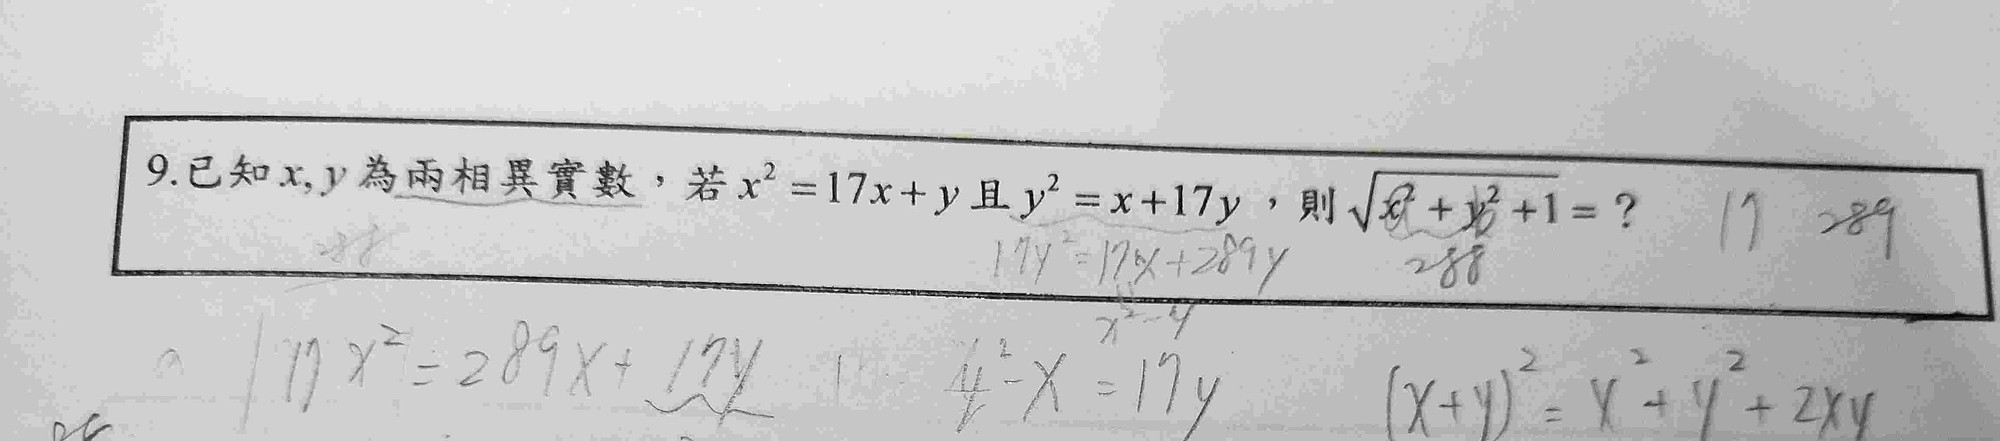 9.已知 x, y 為兩相異實數，若 x² = 17x + y 且 y² = x + 17y，則 √(x² + y² + 1) = ？ 17 289
288 17y² = 17x + 289y 288
x² - y
17x² = 289x + 17y y² - x = 17y (x+y)² = x² + y² + 2xy